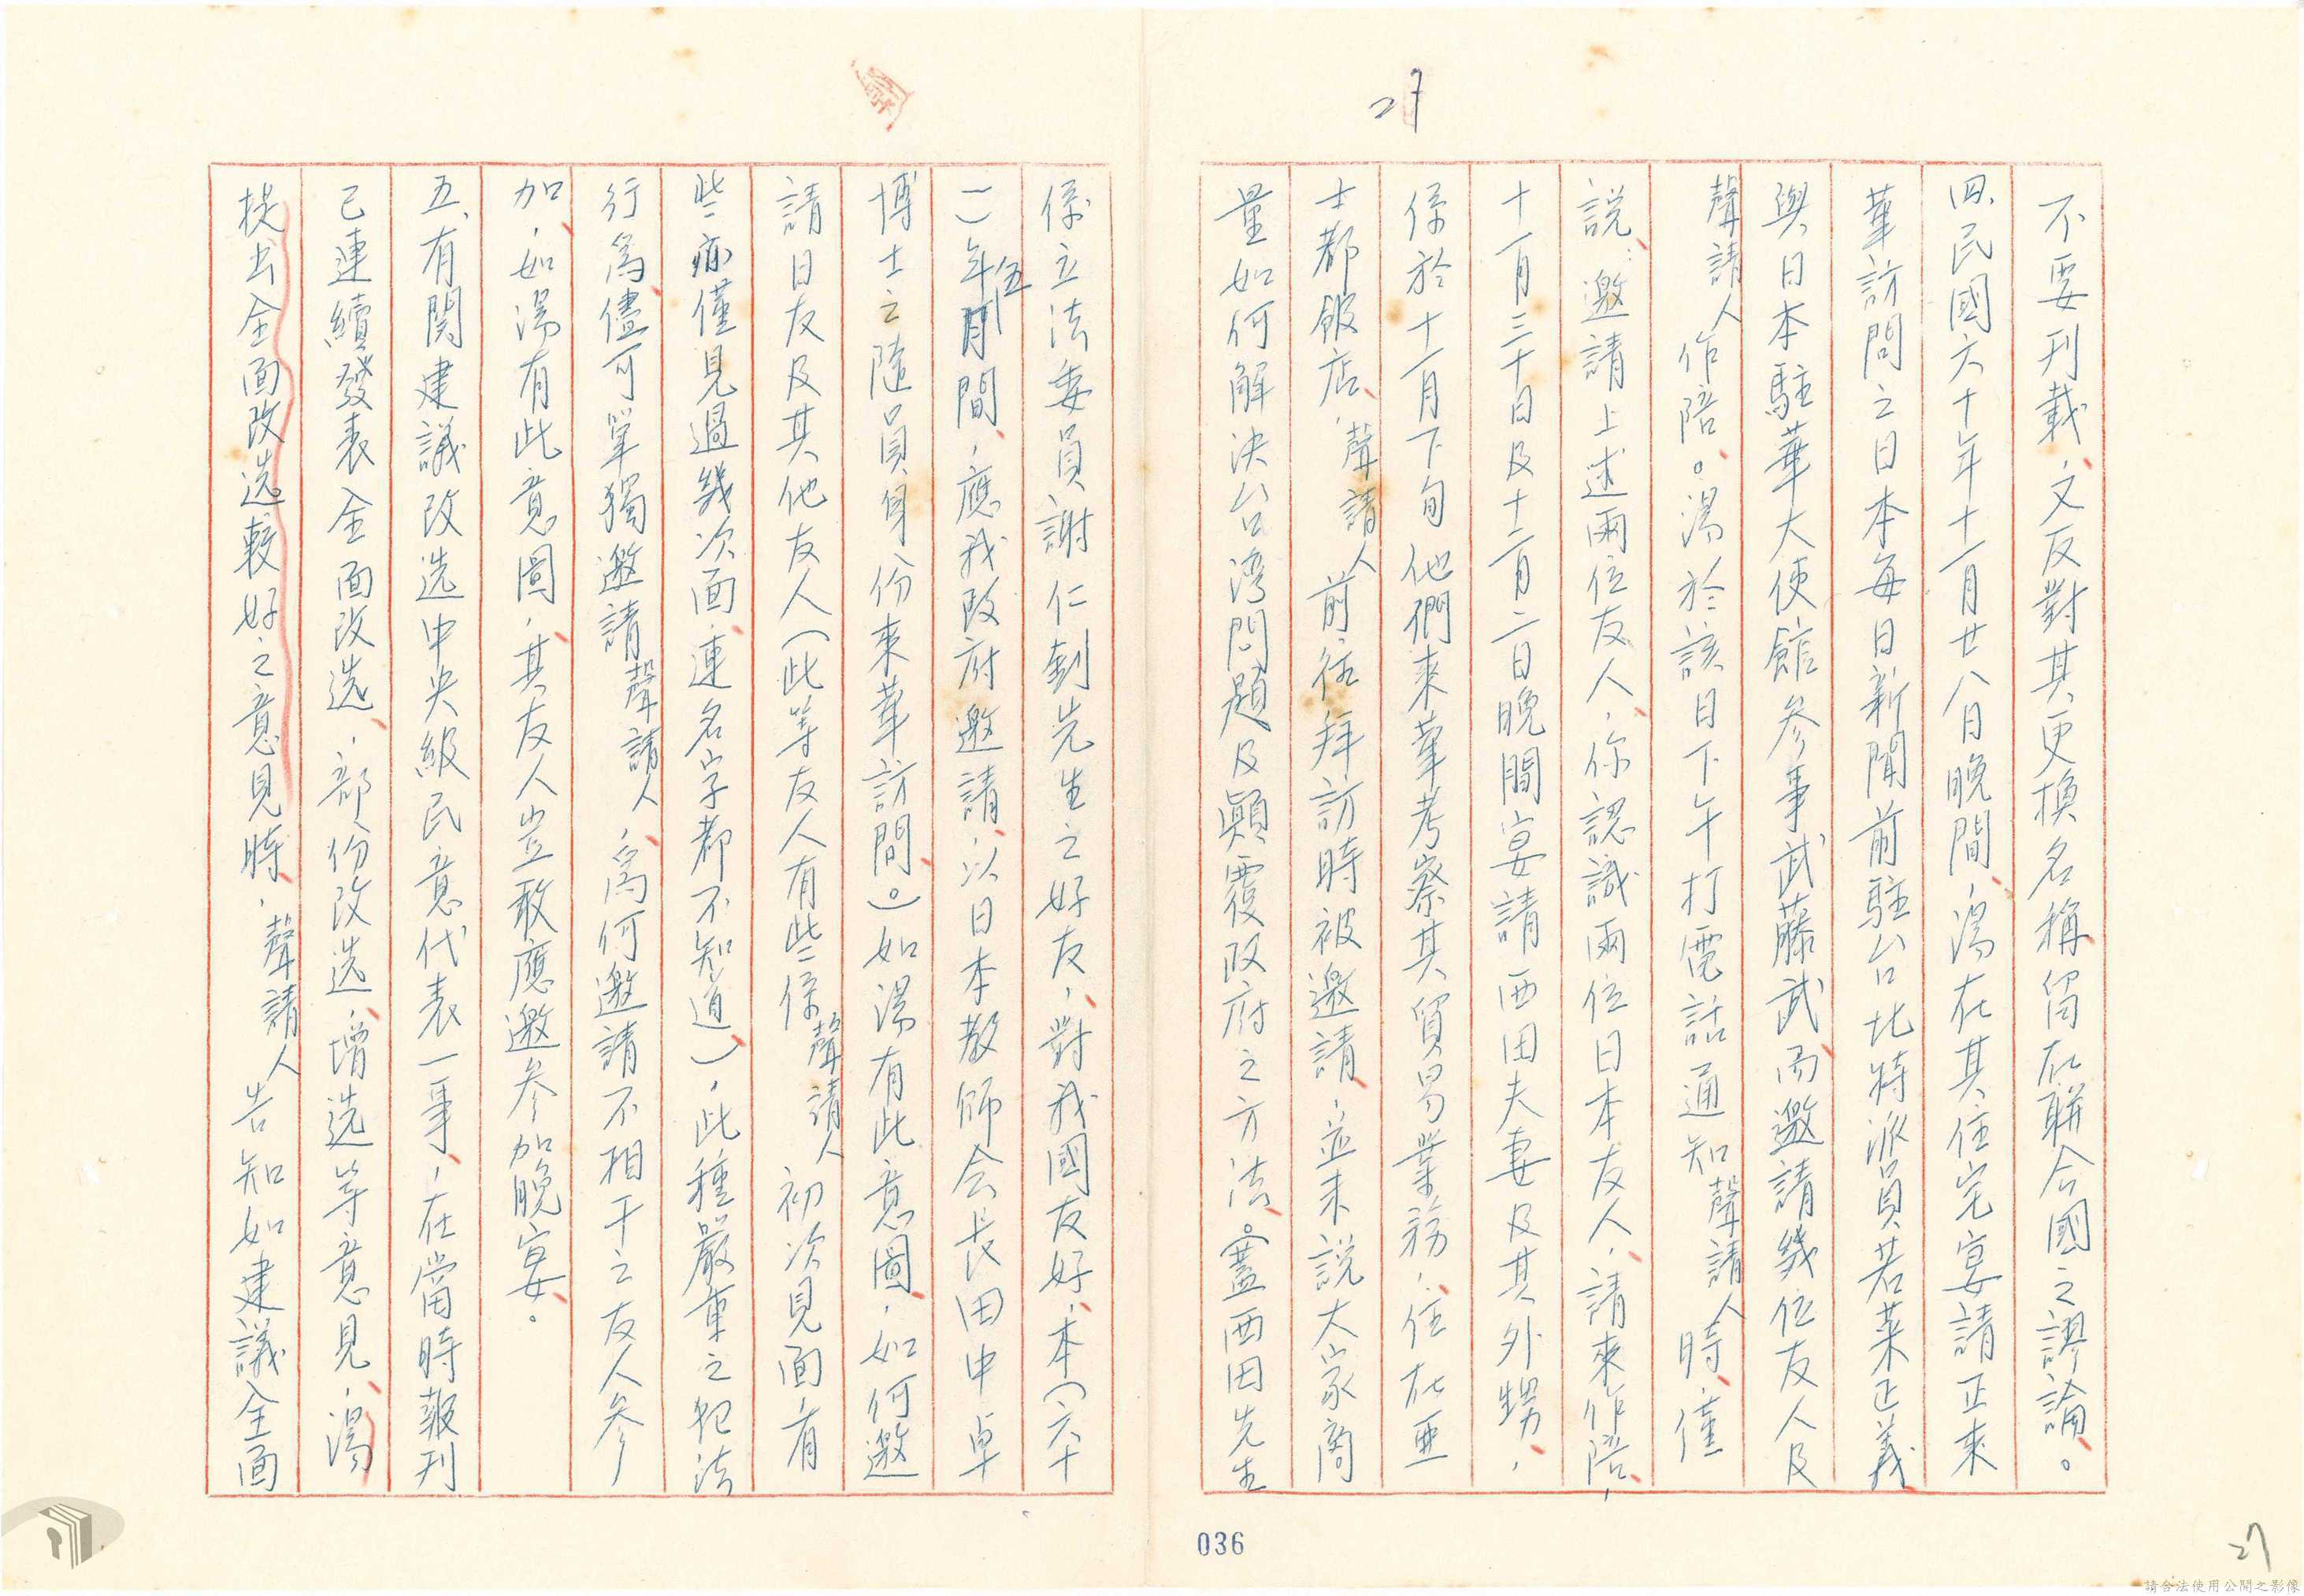 27
不要刊載，文反對其更換名稱留在聯合國之謬論。
四、民國六十年十一月廿八日晚間，湯在其住宅宴請正來
華訪問之日本每日新聞前駐台北特派員若菜正義
與日本駐華大使館參事武藤武而邀請幾位友人及
聲請人作陪。湯於該日下午打電話通知聲請人時，僅
說：邀請上述兩位友人，你認識兩位日本友人，請來作陪，
十一月三十日及十二月二日晚間宴請西田夫妻及其外甥，
係於十一月下旬他們來華考察其貿易業務，住在亞
士都飯店，聲請人前往拜訪時被邀請，並未說大家商
量如何解決台湾問題及顛覆政府之方法。蓋西田先生
係立法委員謝仁釗先生之好友，對我國友好，本（六十
一）年五月間，應我政府邀請，以日本教師会長田中卓
博士之隨員身份來華訪問。）如湯有此意圖，如何邀
請日友及其他友人（此等友人有些係聲請人初次見面，有
些亦僅見過幾次面，連名字都不知道），此種嚴重之犯法
行為儘可單獨邀請聲請人，為何邀請不相干之友人參
加，如湯有此意圖，其友人豈敢應邀參加晚宴。
五、有関建議改选中央級民意代表一事，在當時報刊
已連續發表全面改选，部份改选，增选等意見，湯
提出全面改选較好之意見時，聲請人告知如建議全面
036
27
請合法使用公開之影像